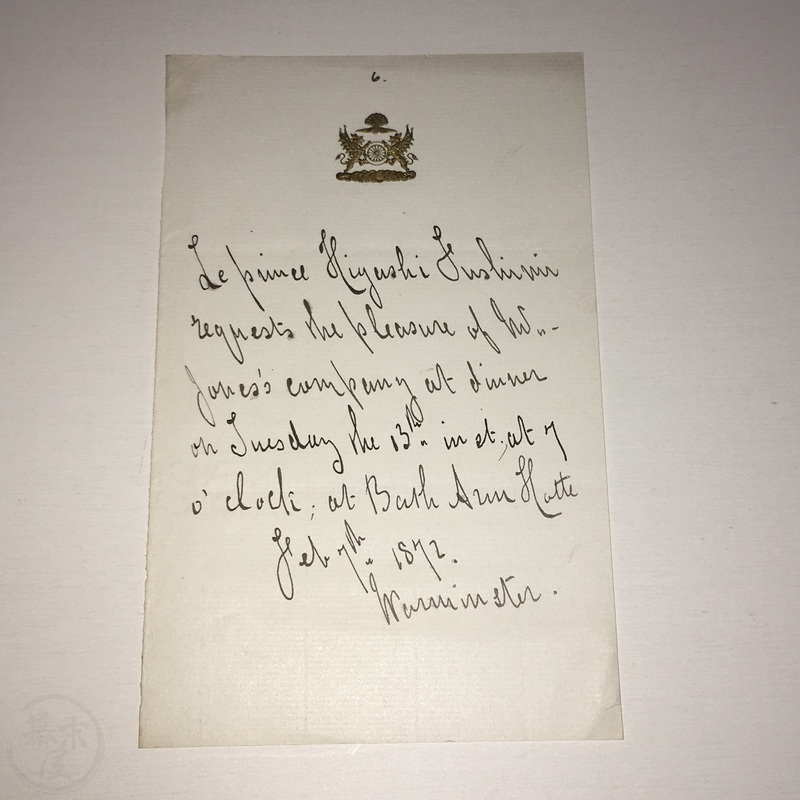 6.
Le prince Higashi Fushimi
requests the pleasure of Mr.
Jones's company at dinner
on Tuesday the 13th. inst. at 7
o'clock, at Bath Arm Hotte
Feb 7th. 1872.
Warminster.
幕末屋